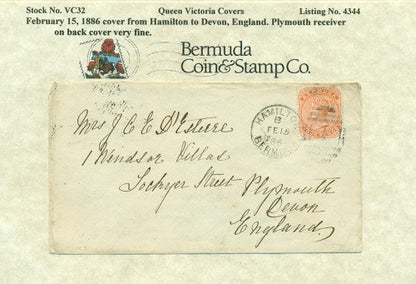 Stock No. VC32 Queen Victoria Covers Listing No. 4344
February 15, 1886 cover from Hamilton to Devon, England. Plymouth receiver
on back cover very fine.
Bermuda
Coin & Stamp Co.
HAMILTON
B
FE 15
BERMUDA
Mrs J C E D'Esterre
1 Windsor Villas
Lockyer Street Plymouth
Devon
England